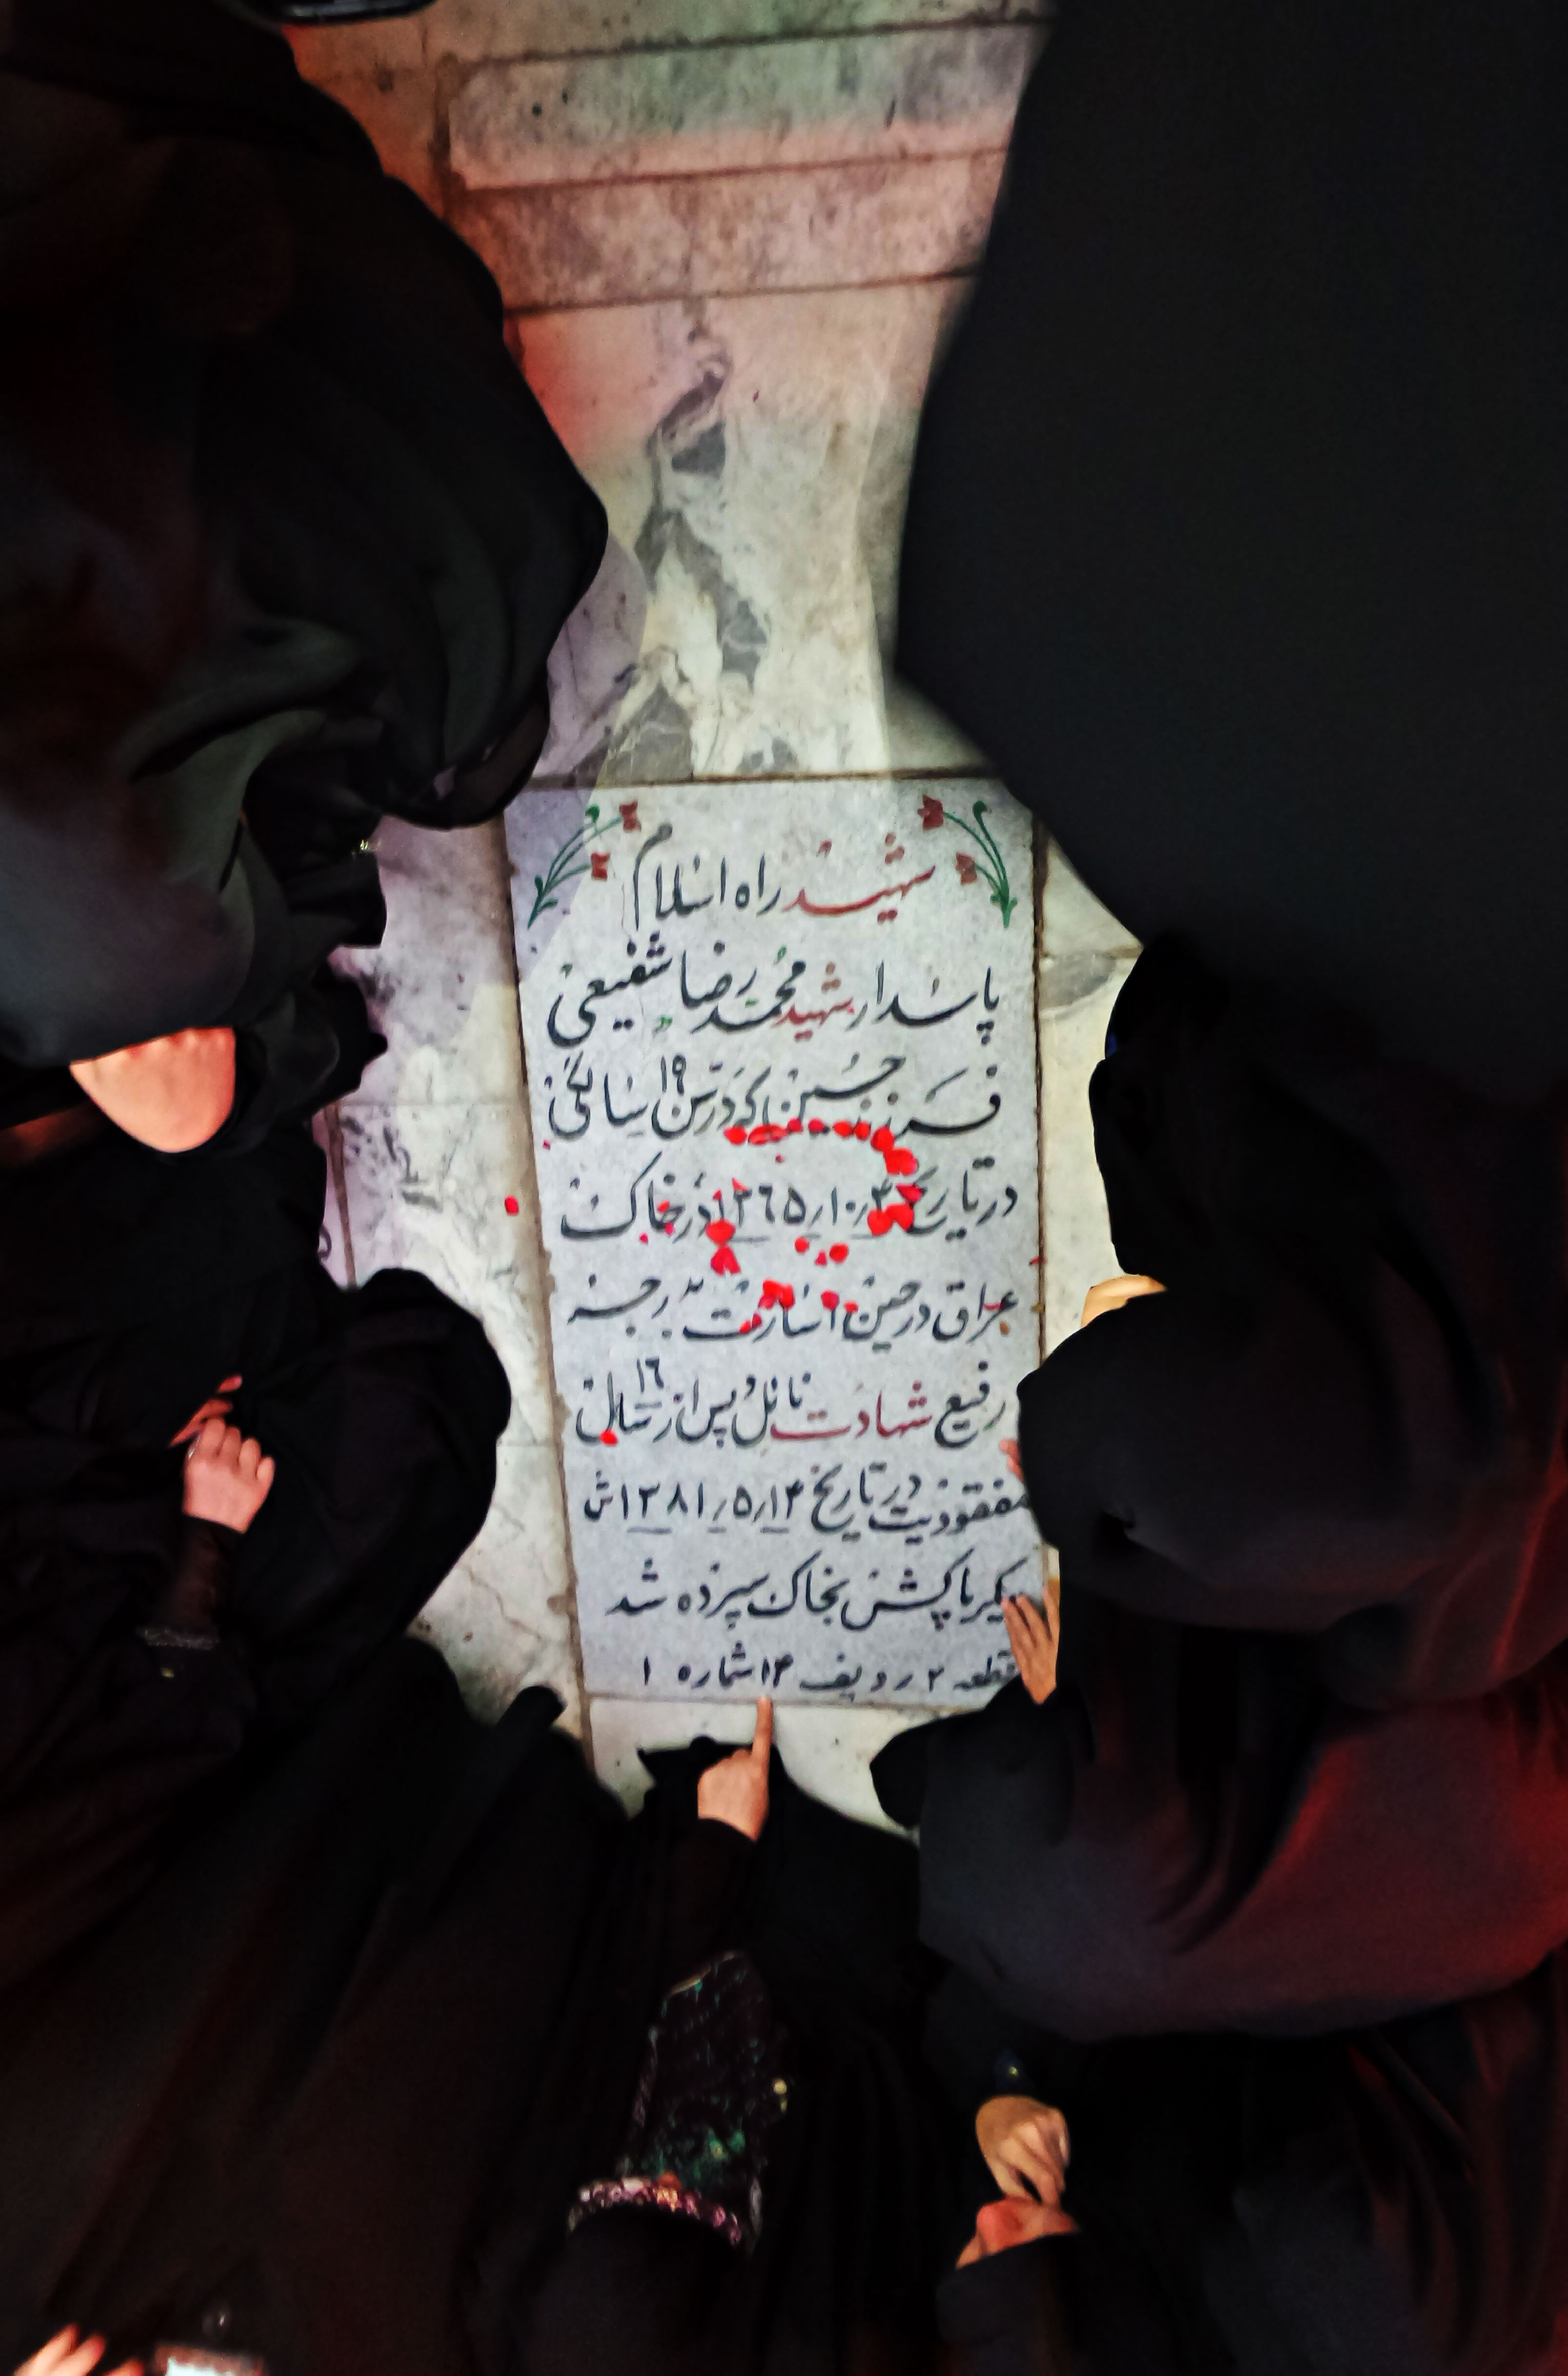 شهید راه اسلام
پاسدار شهید محمد رضا شفیعی
فرزند حسین که در سن ۱۹ سالگی
در تاریخ ۱۳٦۵٫۱۰٫۴ در خاک
عراق در حین اسارت بدرجه
رفیع شهادت نائل و پس از ۱٦ سال
مفقودیت در تاریخ ۱۳۸۱٫۵٫۱۴ ش
پیکر پاکش بخاک سپرده شد
قطعه ۲ ردیف ۱۴ شماره ۱